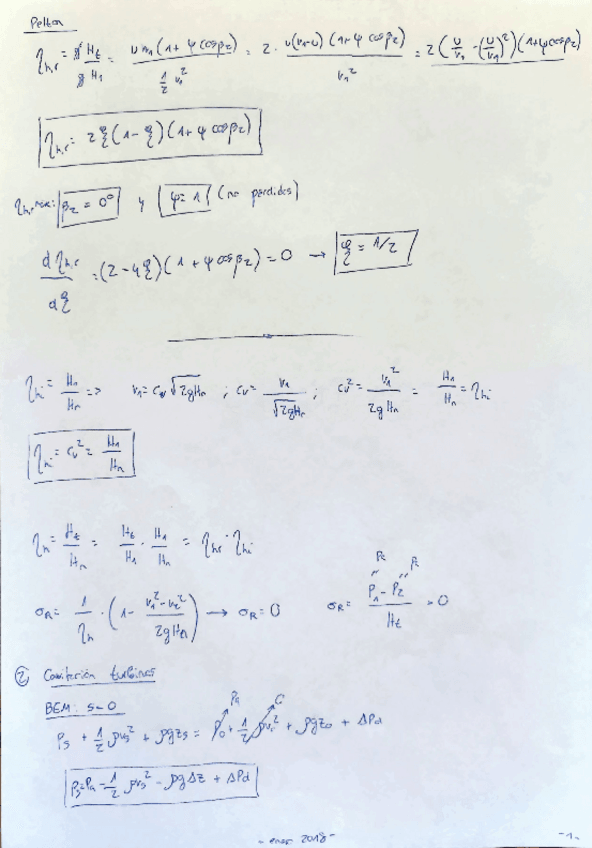 Pelton
η_h,r = g H_t / g H_1 = u w_1 (1 + ψ cos β_2) / ½ v_1² = 2 · u(v_1-u) (1 + ψ cos β_2) / v_1² = 2 (u/v_1 - (u/v_1)²) (1 + ψ cos β_2)
η_h,r = 2ξ (1 - ξ) (1 + ψ cos β_2)
η_h,r max: β_2 = 0° y ψ = 1 (no perdidas)
dη_h,r / dξ = (2 - 4ξ) (1 + ψ cos β_2) = 0 → ξ = 1/2
η_hi = H_1 / H_n => v_1 = c_v √2gH_n ; c_v = v_1 / √2gH_n ; c_v² = v_1² / 2gH_n = H_1 / H_n = η_hi
η_hi = c_v² = H_1 / H_n
η_h = H_t / H_n = H_t / H_1 · H_1 / H_n = η_hr · η_hi
σ_R = 1 / η_h · (1 - v_1² - v_2² / 2gH_n) → σ_R = 0 σ_R = P_1 - P_2 / H_t = 0
② Cavitación turbinas
BEM: s-0
P_s + ½ ρv_s² + ρgz_s = P_0 + ½ ρv_0² + ρgz_0 + ΔP_d
P_s = P_a - ½ ρv_s² - ρgΔz + ΔP_d
- enero 2018 -
- 1 -